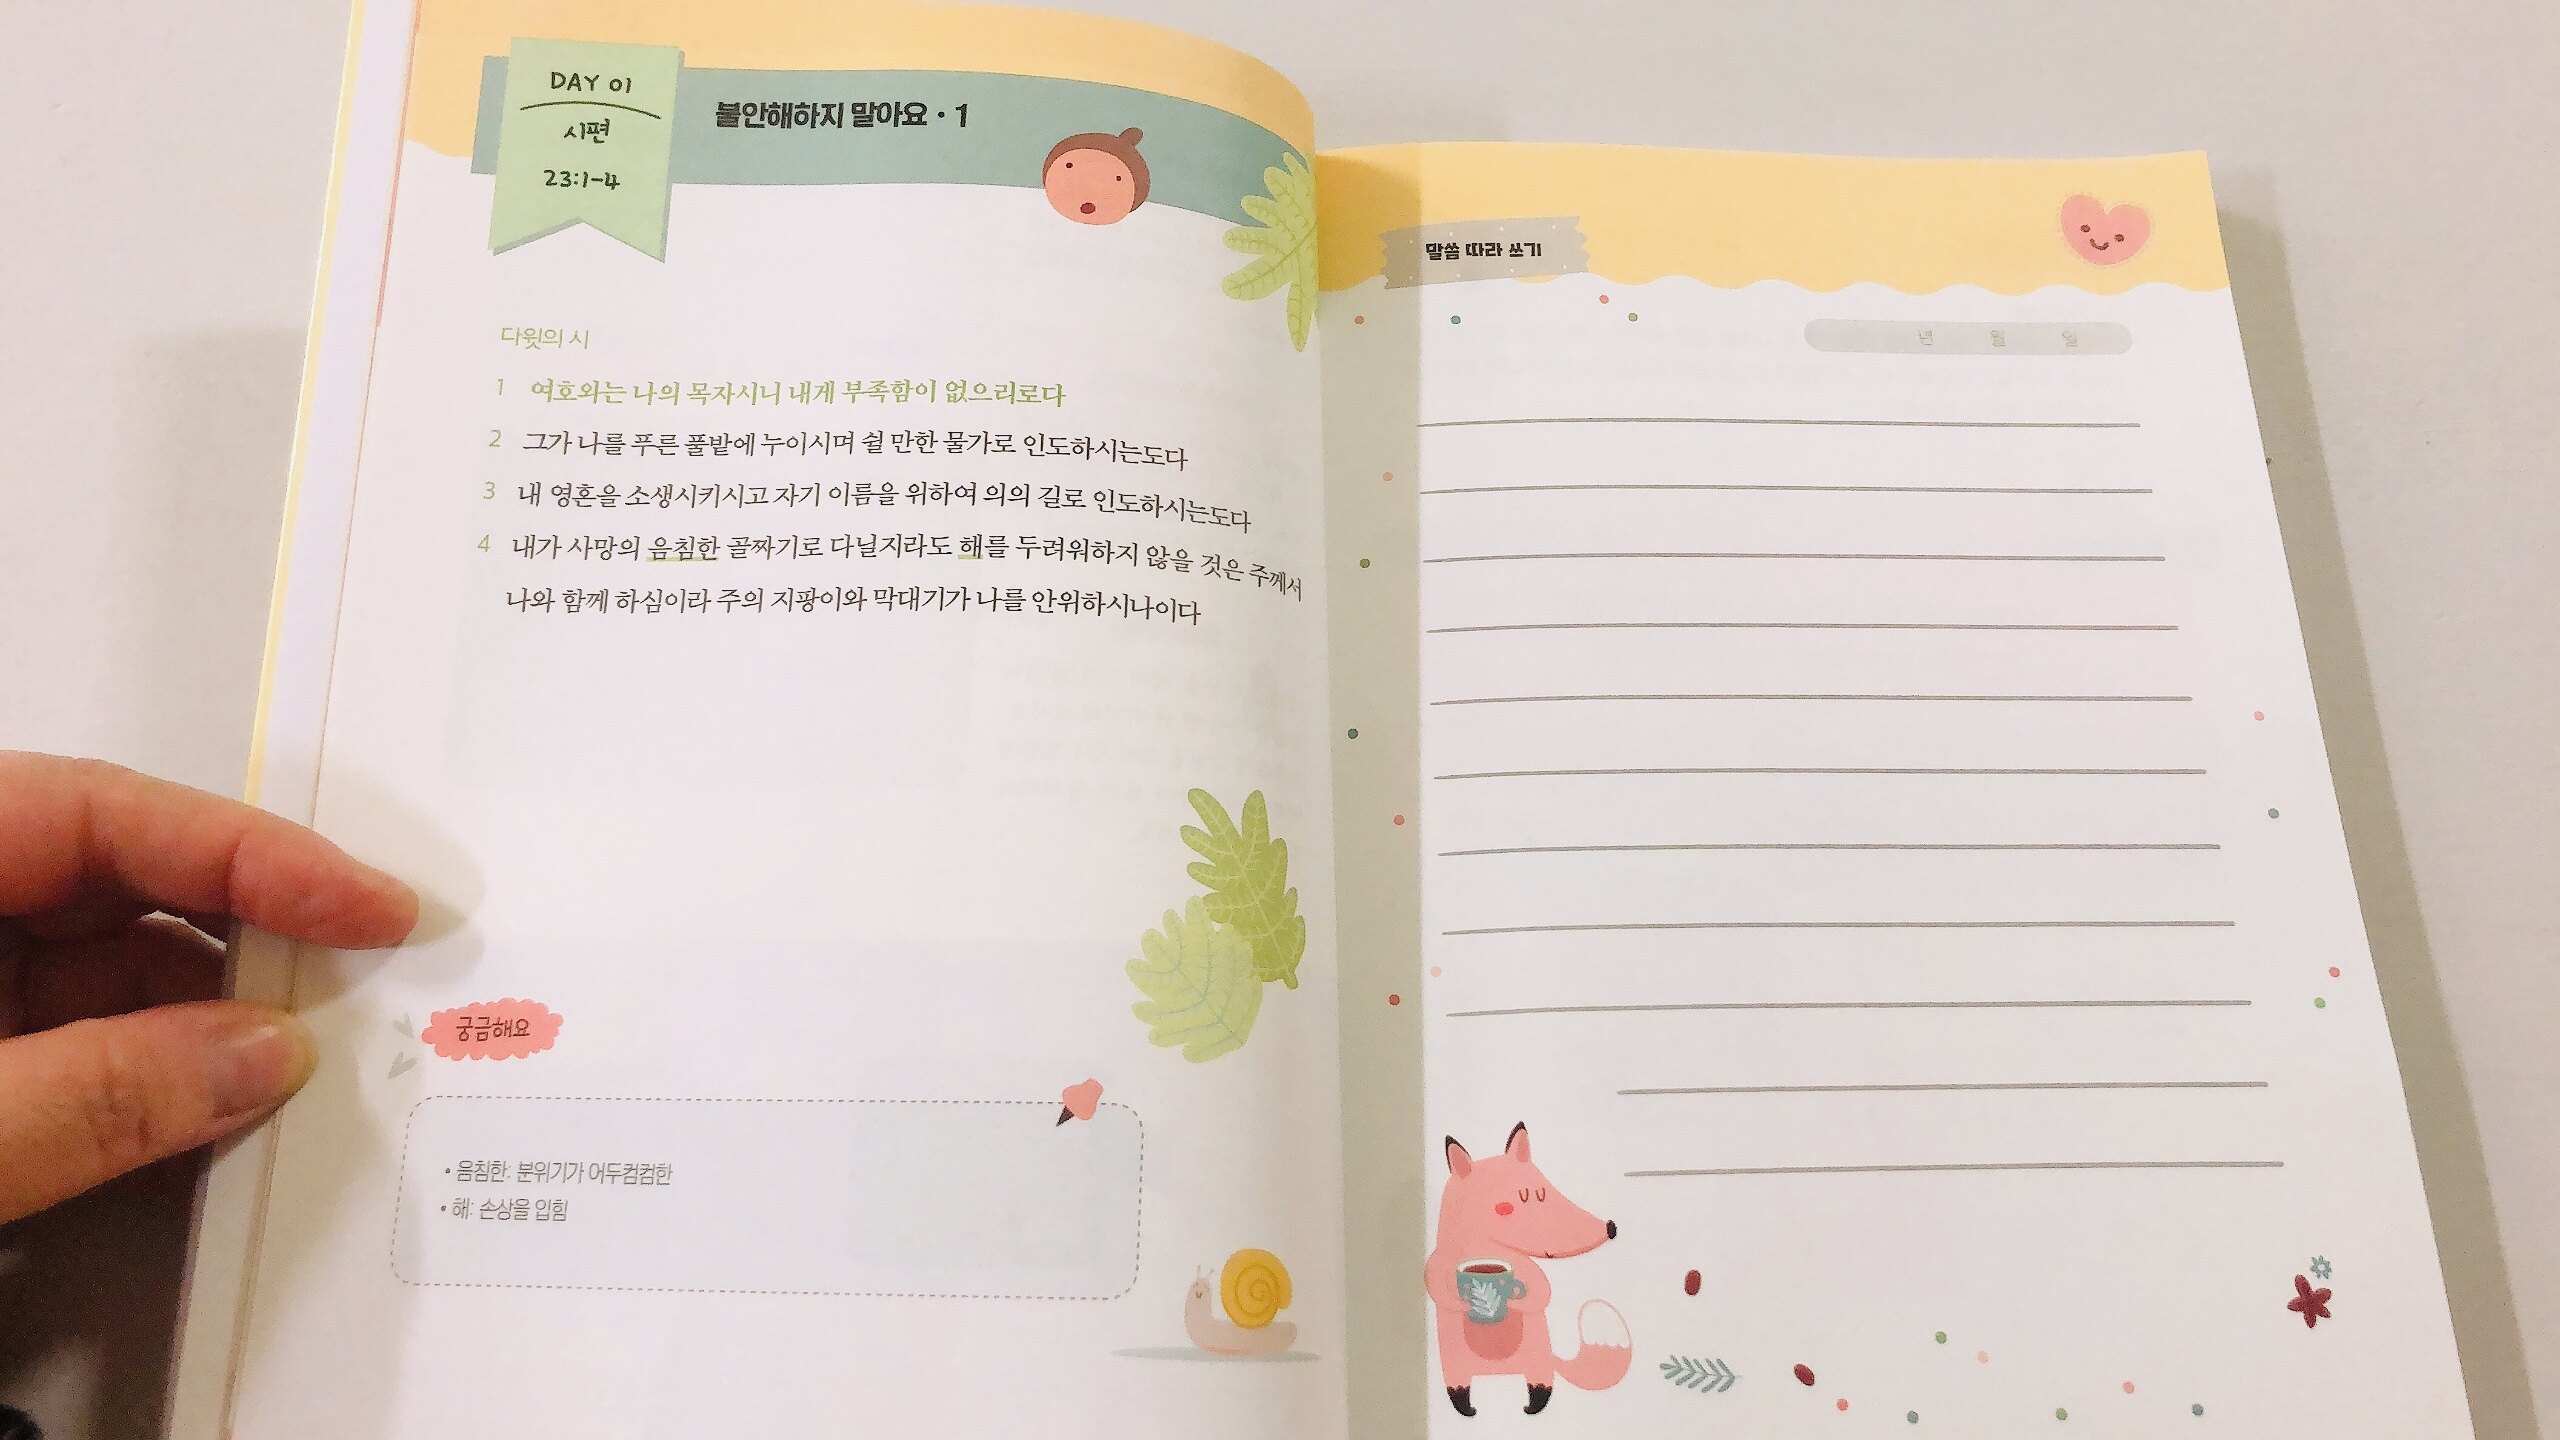 DAY 01
시편
23:1-4
불안해하지 말아요 · 1
다윗의 시
1 여호와는 나의 목자시니 내게 부족함이 없으리로다
2 그가 나를 푸른 풀밭에 누이시며 쉴 만한 물가로 인도하시는도다
3 내 영혼을 소생시키시고 자기 이름을 위하여 의의 길로 인도하시는도다
4 내가 사망의 음침한 골짜기로 다닐지라도 해를 두려워하지 않을 것은 주께서
나와 함께 하심이라 주의 지팡이와 막대기가 나를 안위하시나이다
궁금해요
• 음침한: 분위기가 어두컴컴한
• 해: 손상을 입힘
말씀 따라 쓰기
년 월 일